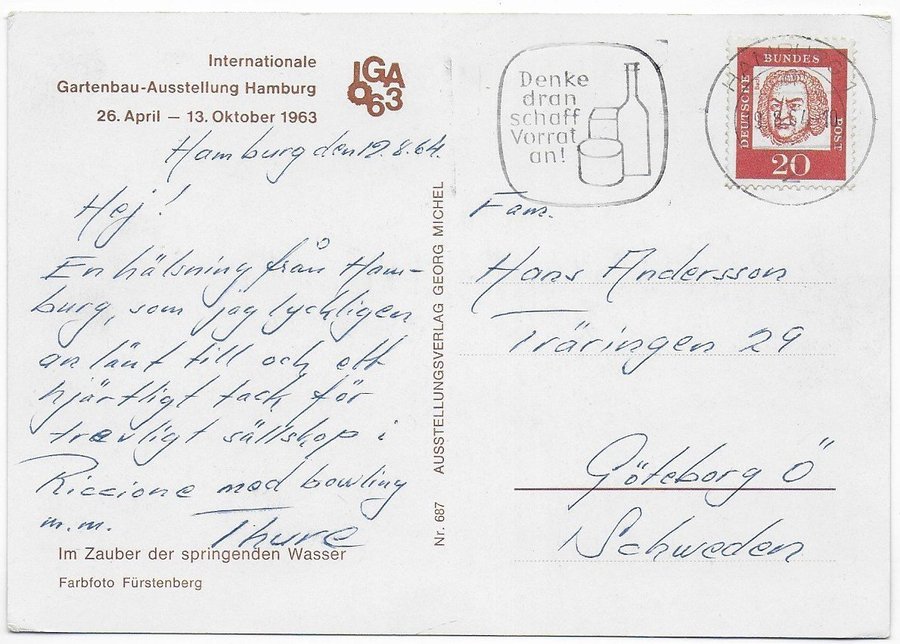 Internationale
Gartenbau-Ausstellung Hamburg
26. April — 13. Oktober 1963
IGA
63
Hamburg den 12.8.64.
Hej!
En hälsning från Ham-
burg, som jag lyckligen
anlänt till och ett
hjärtligt tack för
trevligt sällskap i
Riccione med bowling
m.m.
Thure
Im Zauber der springenden Wasser
Farbfoto Fürstenberg
Nr. 687 AUSSTELLUNGSVERLAG GEORG MICHEL
Denke
dran
schaff
Vorrat
an!
DEUTSCHE
BUNDES
POST
20
Fam.
Hans Andersson
Träringen 29
Göteborg Ö
Schweden